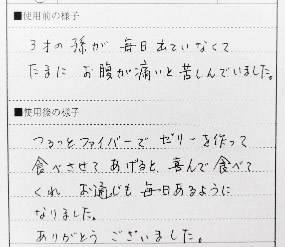 ■使用前の様子
3才の孫が毎日出ていなくて
たまにお腹が痛いと苦しんでいました。
■使用後の様子
つるっとファイバーでゼリーを作って
食べさせてあげると、喜んで食べて
くれお通じも毎日あるように
なりました。
ありがとうございました。